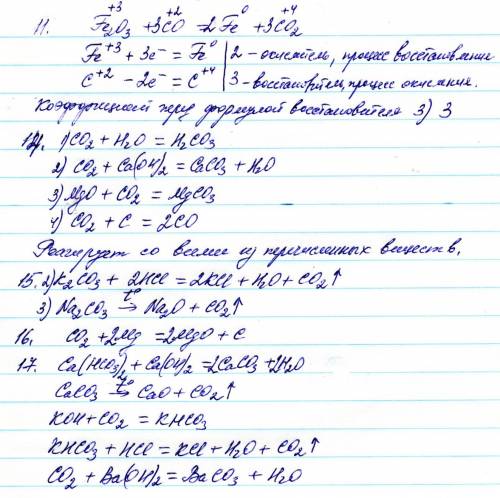 +3 +2 +4
11. Fe₂O₃ + 3CO = 2Fe⁰ + 3CO₂
Fe⁺³ + 3e⁻ = Fe⁰ | 2 - окислитель, процесс восстановления
C⁺² - 2e⁻ = C⁺⁴ | 3 - восстановитель, процесс окисления.
Коэффициент перед формулой восстановителя 3) 3
14. 1) CO₂ + H₂O = H₂CO₃
2) CO₂ + Ca(OH)₂ = CaCO₃ + H₂O
3) MgO + CO₂ = MgCO₃
4) CO₂ + C = 2CO
Реагирует со всеми из перечисленных веществ.
15. 2) K₂CO₃ + 2HCl = 2KCl + H₂O + CO₂↑
3) Na₂CO₃ →t° Na₂O + CO₂↑
16. CO₂ + 2Mg = 2MgO + C
17. Ca(HCO₃)₂ + Ca(OH)₂ = 2CaCO₃ + 2H₂O
CaCO₃ →t° CaO + CO₂↑
KOH + CO₂ = KHCO₃
KHCO₃ + HCl = KCl + H₂O + CO₂↑
CO₂ + Ba(OH)₂ = BaCO₃ + H₂O